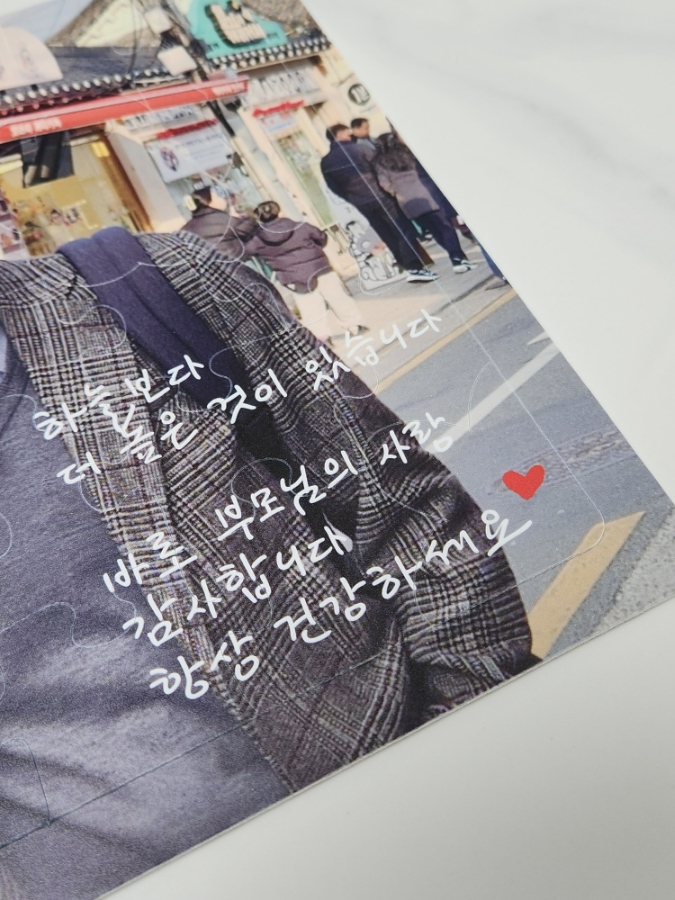 하늘보다
더 높은 것이 있습니다
바로 부모님의 사랑
감사합니다
항상 건강하세요